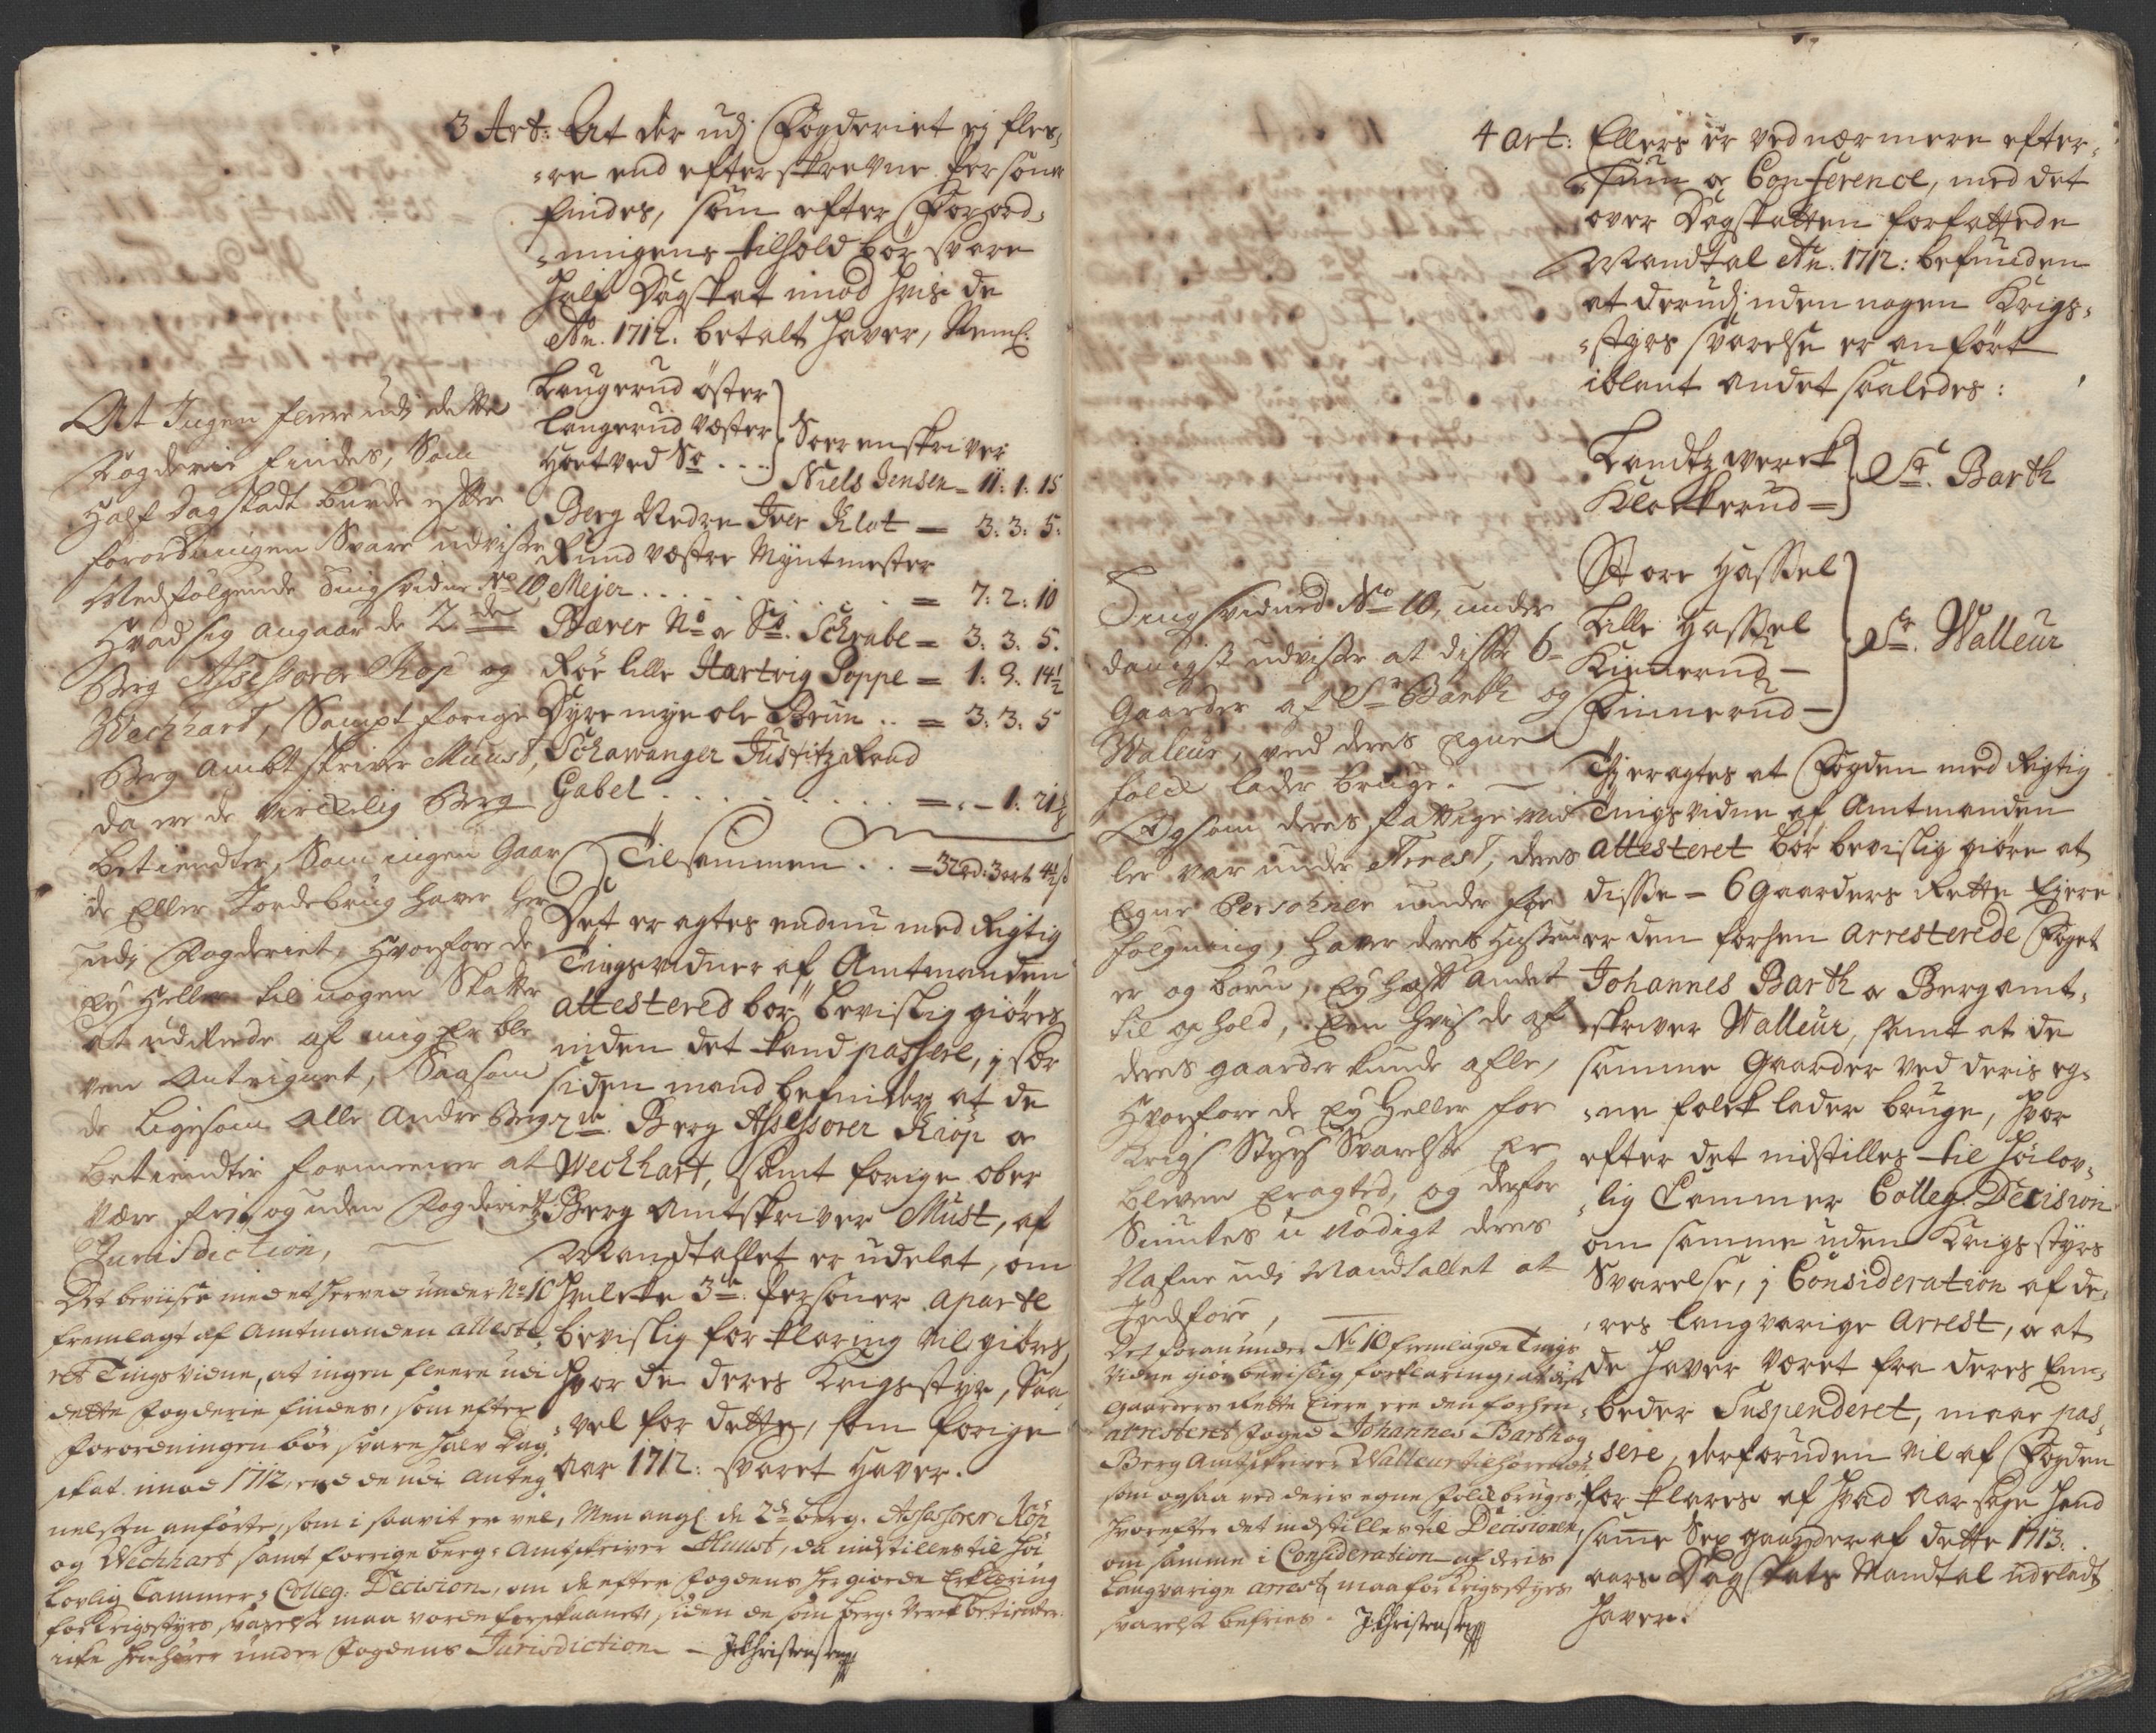 3 Art: At der udj Fögderiet ej fles,
=re end efterskrevne Persone
findes, som efter Forord=
=ningens tilhold bör svare
halfv Dagskat imod hvis de
Ao. 1712. betalt haver, Neml:
Laugerud öster
Laugerud vester
Hoetved So . . .
Sorenskriver
Niels Jensen = 11: 1: 15
Berg Nedre Iver Klot = 3: 3: 5:
Rund væstre Myntmester
Mejer . . . . . . . = 7: 2: 10
Bærer No a Sr. Schrabe = 3. 3. 5.
Röe lille Hartvig Poppe = 1: 9: 14½
Dyremyr ole Brun . . = 3: 3: 5
Schawanger Justitz Raad
Gabel . . . . . . . = - 1: 21½
Tilsammen . . = 32rd: 3ort 4½s
Det eragtes endnu med Rigtig
Tingsvidner af Amtmanden
attestered bör bevislig giöres
inden det kand passere, i sær
siden mand befinder at de
2de. Berg Assessorer Kiöp og
Wechhart, samt forige ober
Berg Amtskriver Must, af
Mandtallet er udelat, om
hvilcke 3de. Personer aparte
bevislig forklaring vil giöres,
hvor de deres Krigsstyr, Saa
=vel for dette, som forige
aar 1712: svaret haver.
At Ingen fleere udj dette
Fogderie findes, Som
Half Dagskadt burde efter
forordningen Svare udviser
Medfølgende Tingsvidne No 10
Hvad sig angaar de 2de
Berg Assessorer Kiop og
Wechhard, Sampt forige
Berg Ambtskriver Muust,
da ere de virckelig Berg
betiendter, Som ingen Gaar
de Eller Jordebrug haver her
udj Fogderiet, Hvorfore de
Ey Heller til nogen Skatter
at udReede af mig Er ble
ven Antegnet, Saasom
de Ligesom Alle Andre Berg
betiendter formeener at
Være frj, og uden Fogderietz
Jurisdiction,
Det beviises med et herved under No 10
fremlagt af Amtmanden atteste=
ret Tingsvidne, at ingen fleere udi
dette Fogderie findes, som efter
Forordningen bør svare halv Dag,
skat imod 1712, end de udi Anteg,
nelsen anførte, som i saavit er vel, Men angl. de 2de berg. Assessorer Kiöp
og Wechhart samt forrige berg: Amtskriver Muust, da indstilles til høi
Lovlig Cammer: Colleg: Decision, om de efter Fogdens her giorde Erklæring
for Krigsstyrs svarelse maa vorde forskaanet, siden de som berg: Verk betiendter
icke henhører under Fogdens Jurisdiction — JChristensen
4 art: Ellers er ved nærmere efter,
=siun og Conference, med det
over Dagskatten forfattede
Mandtal Ao. 1712: befunden
at derudj uden nogen Krigs,
=styrs svarelse er anført
iblant andet saaledes:
Landtzwerck
Klockerud =
Sr. Barth
Store Hassel
Lille Hassel
Kimerud —
Finnerud —
Sr. Walleur
Thj eragtes at Fogden med Rigtig
Tingsvidne af Amtmanden
attesteret bör bevislig giöre at
disse = 6 gaarders Rette Ejere
er den forhen arresterede Foget
Johannes Barth a Bergamt,
=skriver Walleur, samt at de
samme Gaarder ved deris eg,
=ne folck lader bruge, hvor
efter det indstilles til Höilov,
=lig Cammer Colleg. Decision
om samme uden Krigsstyrs
Svarelse, i Consideration af de,
=res langvarige Arrest, a at
de haver været fra deres Em,
=beder Suspenderet, maae pas,
=sere, derforuden vil af Fogden
forklares af hvad aarsage hand
same Sex gaarder af dette 1713:
aars Dagskats Mandtal udeladt
haver.
Tingsvidned No 10, under
danigst udviser at disse 6=
Gaarder af Sr Barth og
Waleur, ved deres Egne
folck lader bruge. —
Og som deres fattige Mid
ler var under Arrest, deres
Egne Persohner under for
følgning, haver deres Hustru
er og börn, Ey haft Andet
til op hold, Een hvis de af
deres gaarder kunde afle,
Hvorfore de Ey Heller for
Krigs Styrs Svarelse Er
bleven Eragted, og derfor
Siuntes u nödigt deres
Nafne udj Mandtallet at
Indføre,
Det foran under No 10 fremlagde Tings
Vidne giør bevislig forklaring, at disse
gaarders Rette Eiere ere den forhen
arresteret Foged Johannes Barth og
Berg Amtskriver Walleur tilhørende
som ogsaa ved deris egne Folck bruges,
hvorefter det indstilles til Decisionen,
om samme i Consideration af deris
Langvarige arrest, maa for Krigsstyrs
svarelse befries. JChristensen